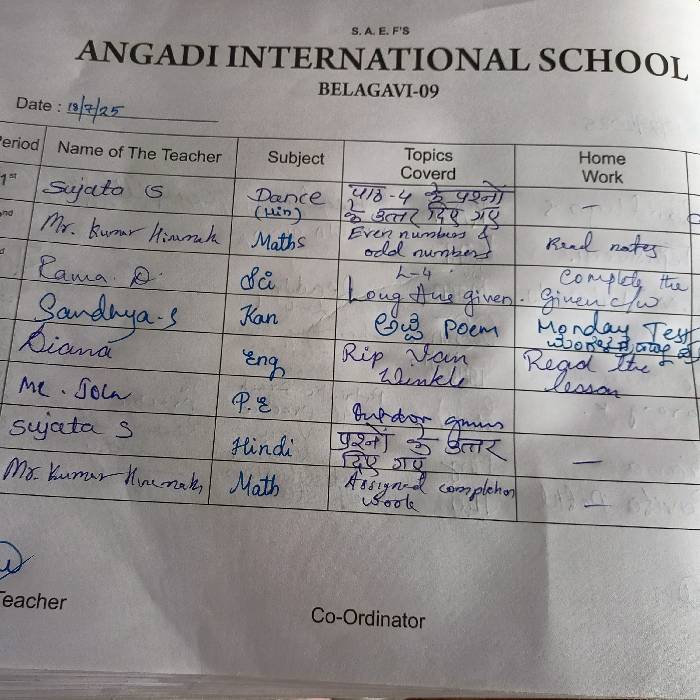 S. A. E. F'S
ANGADI INTERNATIONAL SCHOOL
BELAGAVI-09
Date : 18/7/25
Period Name of The Teacher Subject Topics Coverd Home Work
1st Sujata S Dance (Hin) पाठ-4 के प्रश्नों के उत्तर दिए गए —
Mr. Kumar Hiremath Maths Even numbers & odd numbers Read notes
Rama. D. Sci L-4. Long Ans given. Complete the given c/w
Sandhya-S Kan ಅವ್ವ poem Monday Test
Diana Eng Rip Van Winkle Read the lesson
Mr. P.E Outdoor games
Sujata S Hindi प्रश्नों के उत्तर दिए गए —
Mr. Kumar Hiremath Math Assigned completion work —
Teacher
Co-Ordinator